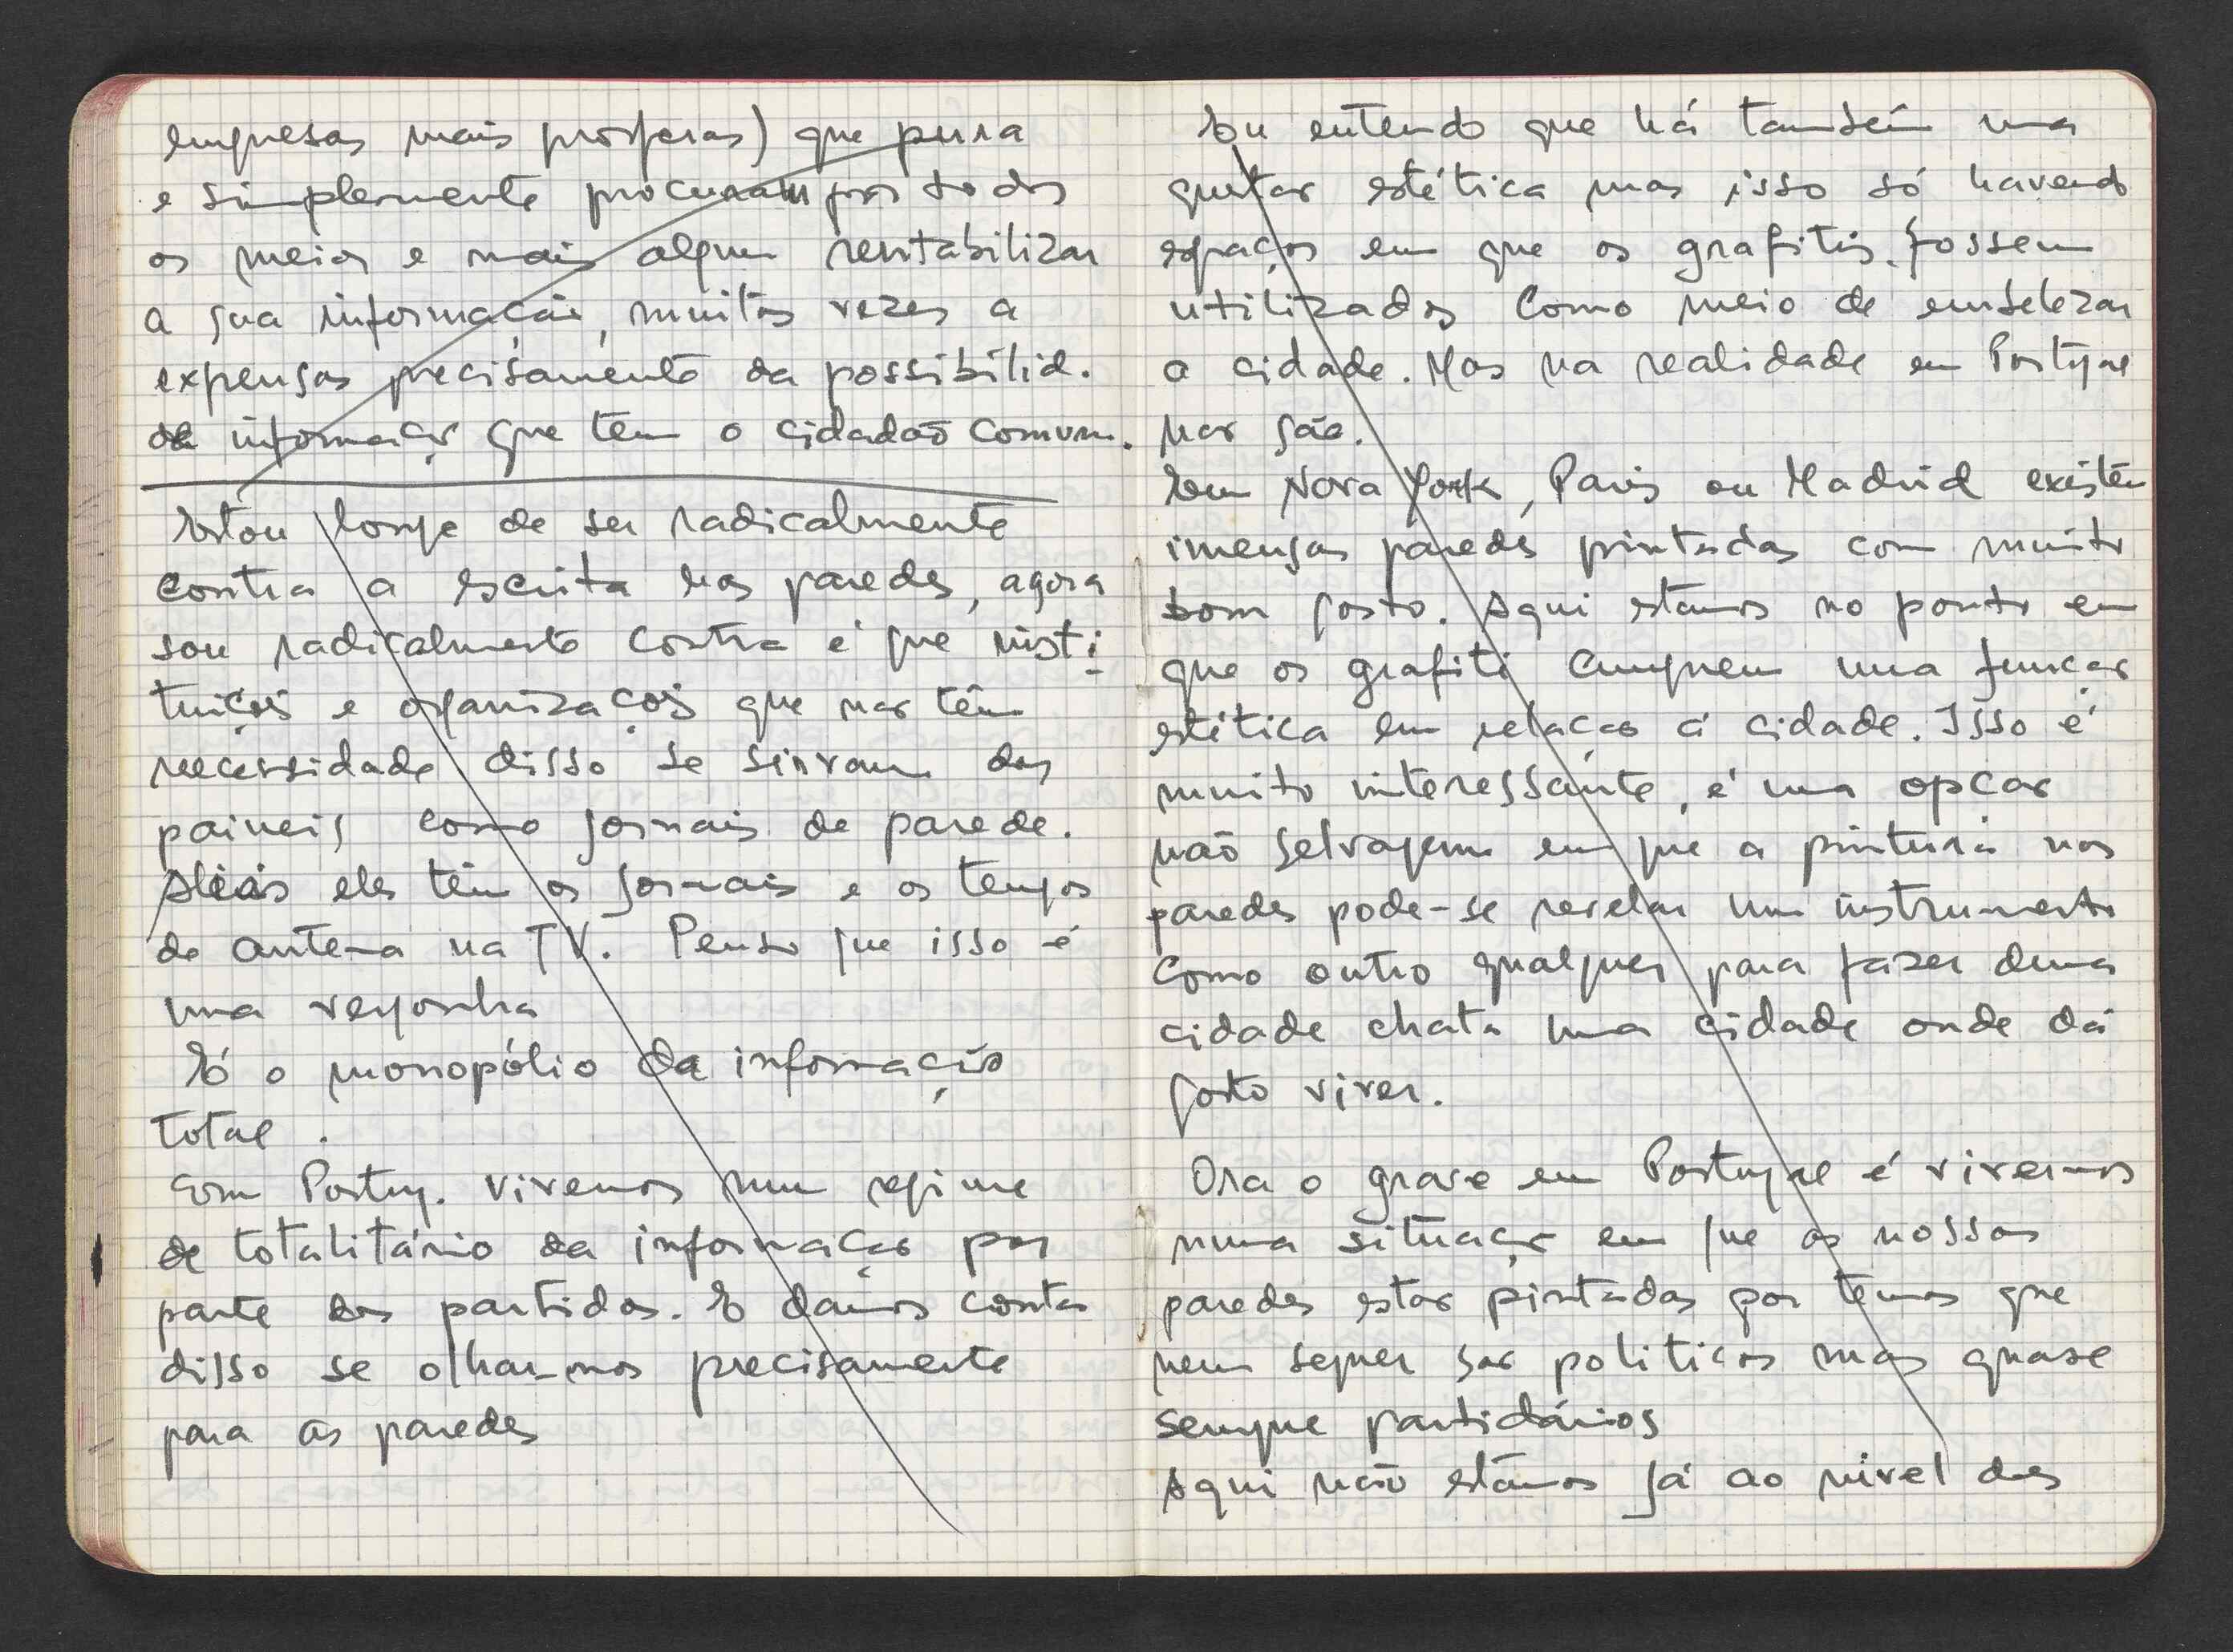 empresas mais prósperas) que pura
e simplesmente procuram por todos
os meios e mais algum rentabilizar
a sua informação, muitas vezes a
expensas precisamente da possibilid.
de informação que tem o cidadão comum.
Estou longe de ser radicalmente
contra a escrita nas paredes, agora
sou radicalmente contra é que insti
tuições e organizações que não têm
necessidade disso se sirvam dos
paineis como jornais de parede.
Aliás eles têm os jornais e os tempos
de antena na TV. Penso que isso é
uma vergonha
É o monopólio da informação
total.
Em Portug. vivemos num regime
de totalitário da informação por
parte dos partidos. E damos conta
disso se olharmos precisamente
para as paredes
Eu entendo que há também uma
questão estética mas isso só havendo
espaços em que os grafitis fossem
utilizados como meio de embelezar
a cidade. Mas na realidade em Portugal
não são.
Em Nova York, Paris ou Madrid existem
imensas paredes pintadas com muito
bom gosto. Aqui estamos no ponto em
que os grafiti cumprem uma função
estética em relação à cidade. Isso é
muito interessante, é uma opção
não selvagem em que a pintura nas
paredes pode-se revelar um instrumento
como outro qualquer para fazer duma
cidade chata uma cidade onde dá
gosto viver.
Ora o grave em Portugal é vivermos
numa situação em que as nossas
paredes estão pintadas por temas que
nem sequer são politicos mas quase
sempre partidários
Aqui não estamos já ao nivel das